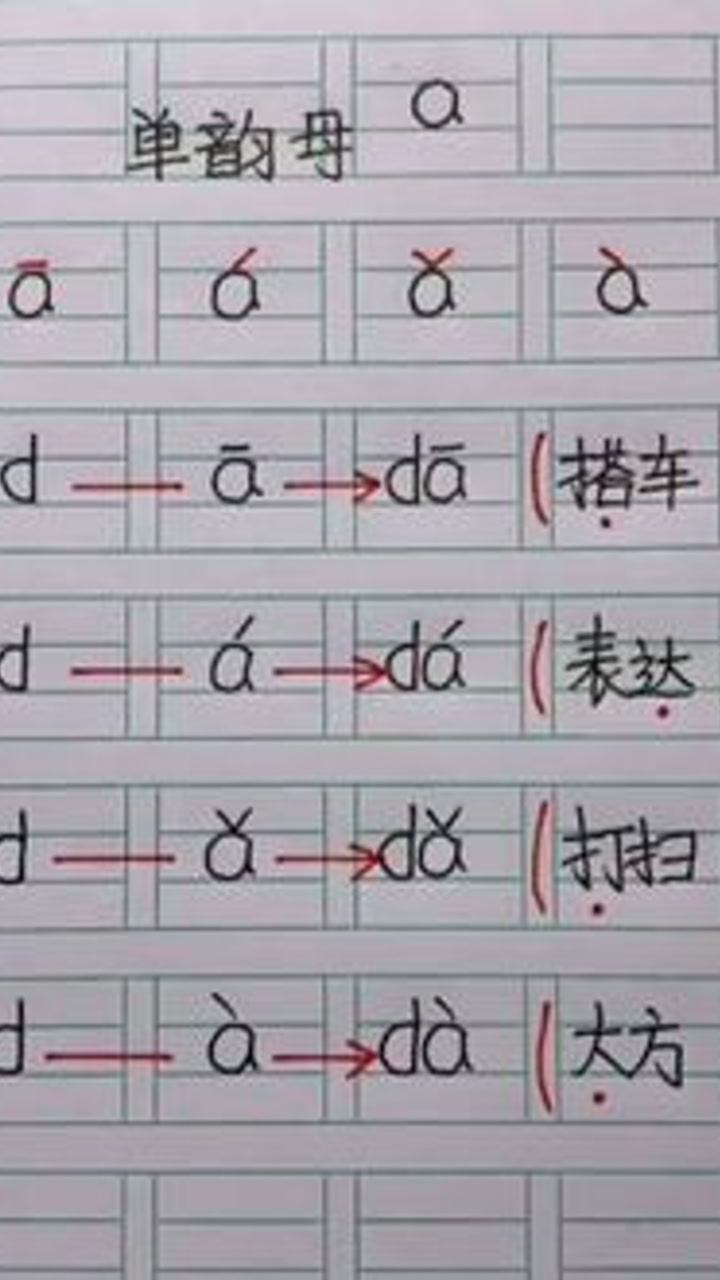 单韵母 a
ā á ǎ à
d — ā → dā (搭车
d — á → dá (表达
d — ǎ → dǎ (打扫
d — à → dà (大方